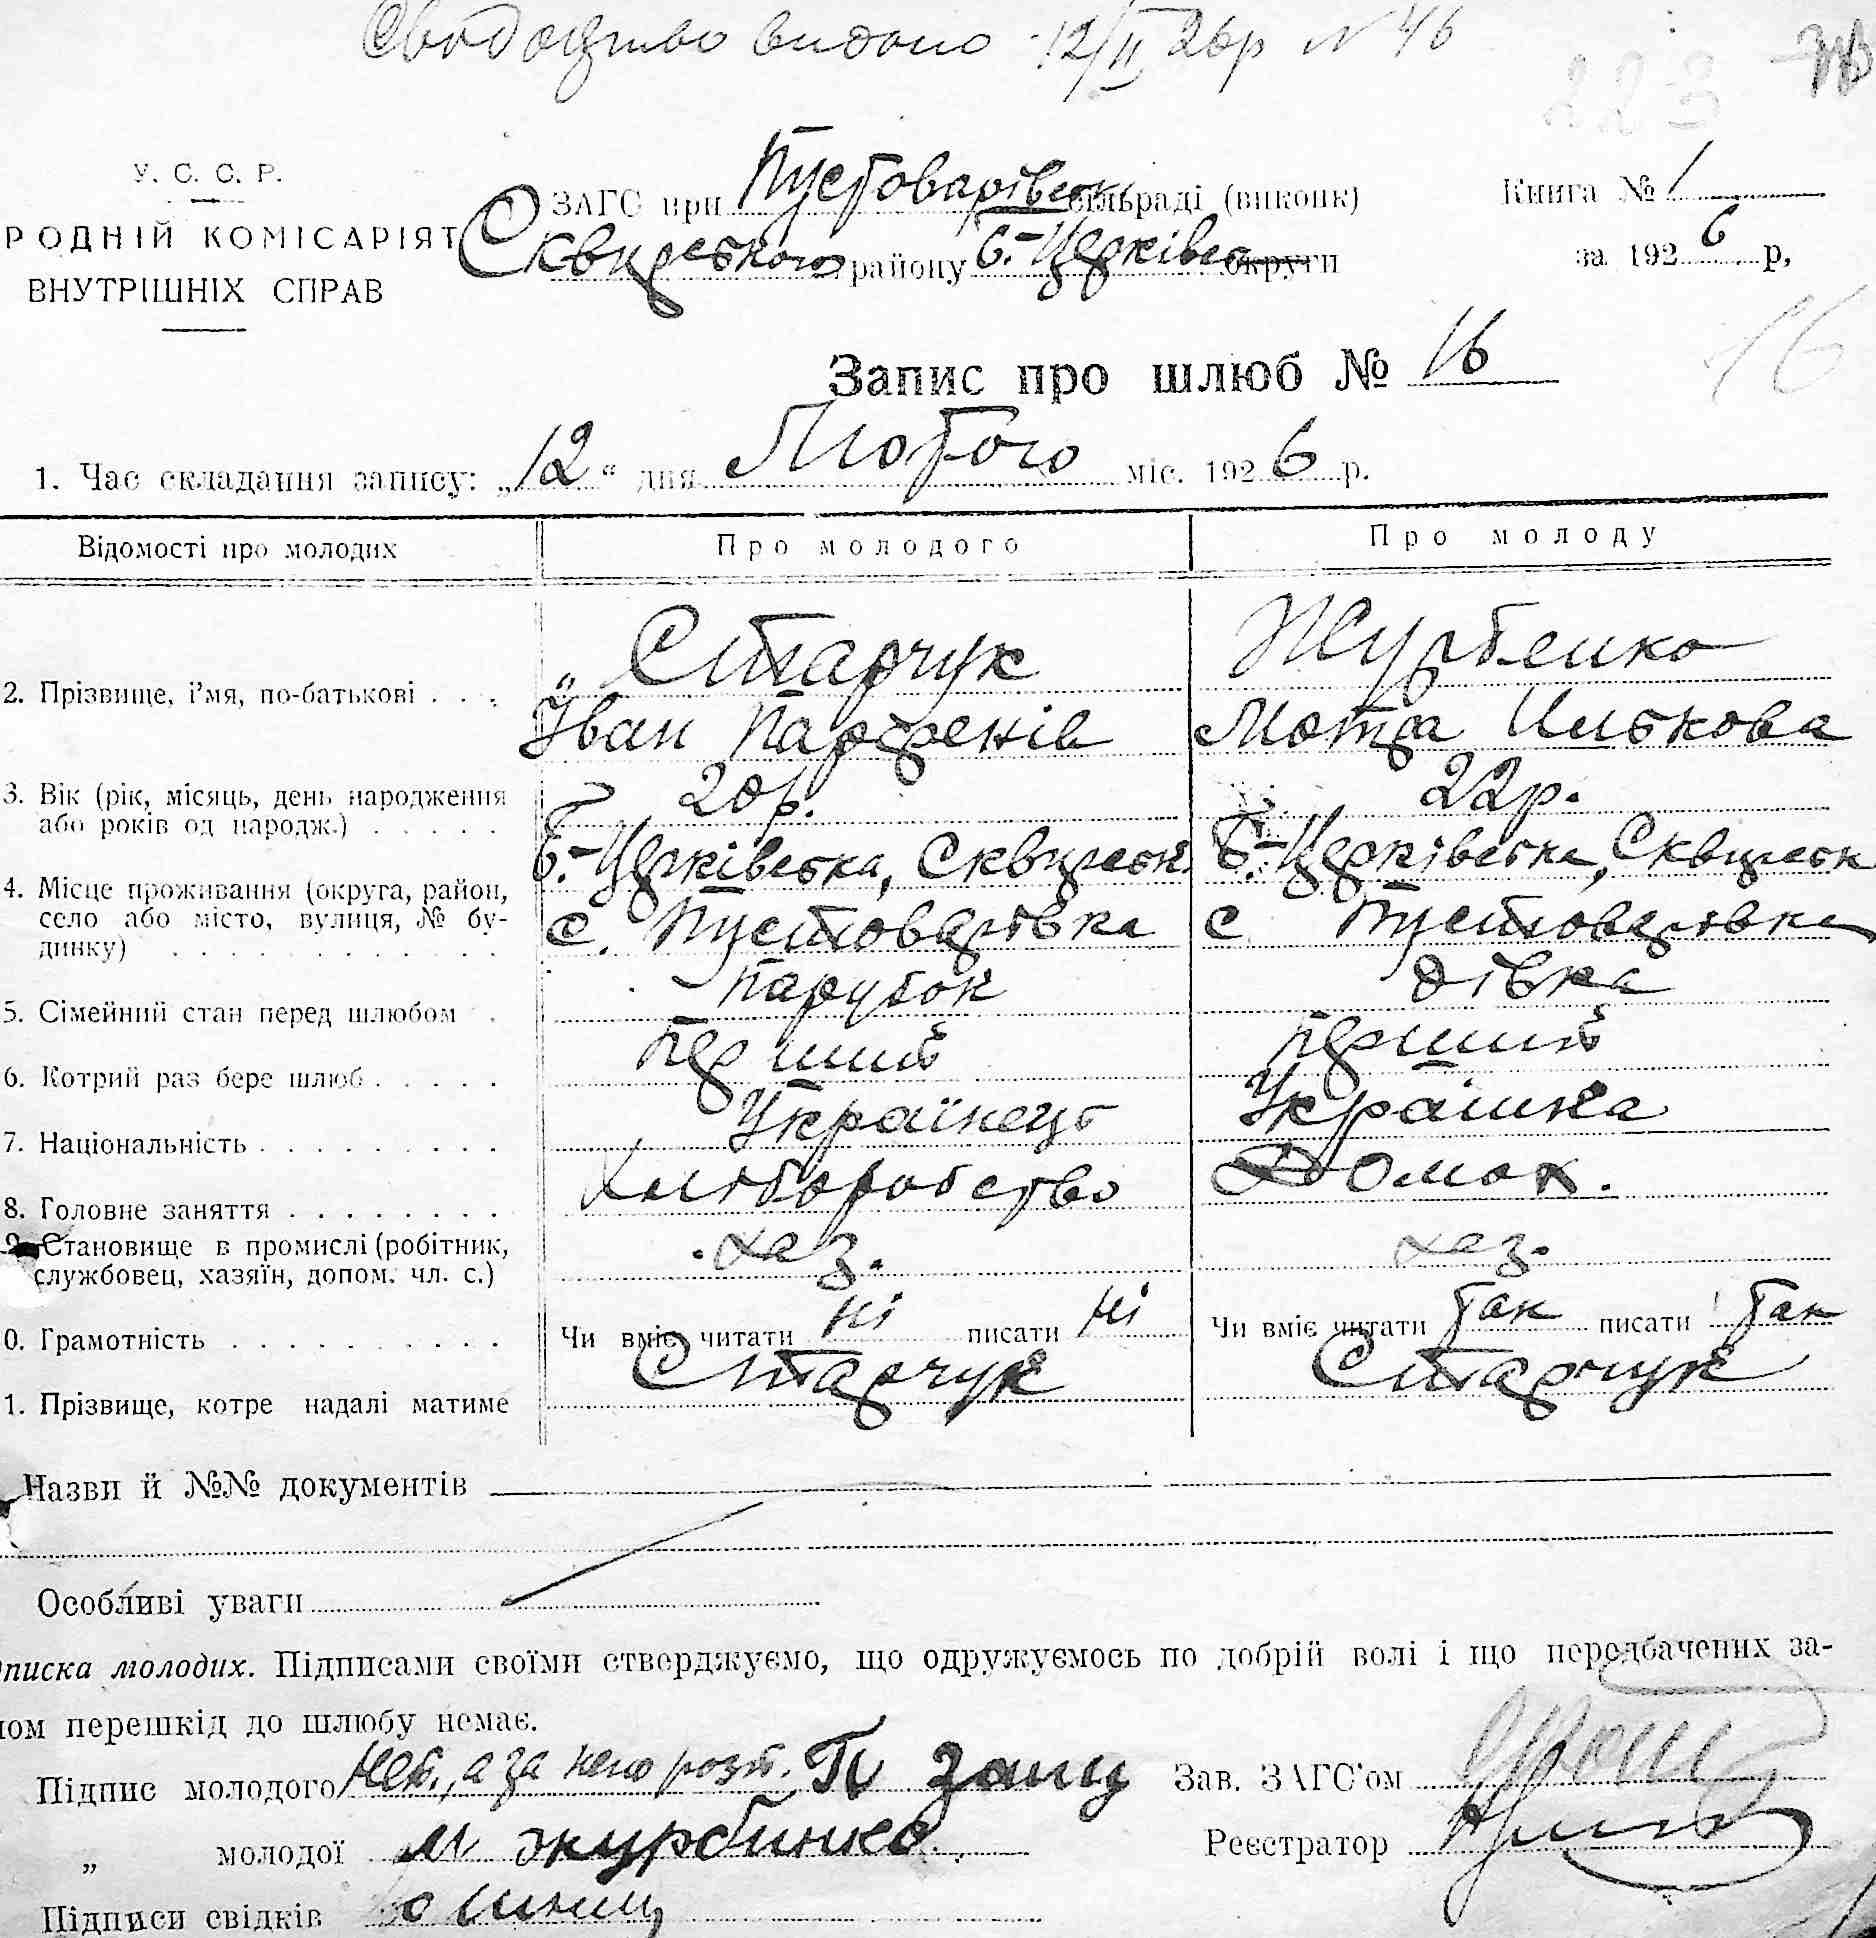 Свидоцтво видано 12/II 26р N 46
223
У. С. С. Р.
РОДНІЙ КОМІСАРІЯТ
ВНУТРІШНІХ СПРАВ
ЗАГС при Пустоварівськ сільраді (виконк)
Сквирського району Б.-Церківськ округи
Книга № 1
за 1926 р,
16
Запис про шлюб № 16
1. Час складання запису: „12“ дня Лютого міс. 1926 р.
Відомості про молодих Про молодого Про молоду
2. Прізвище, і'мя, по-батькові . . . Старчук Журбенко
Іван Парфенів Мотя
3. Вік (рік, місяць, день народження 20р. 22р.
або років од народж.) . . . . .
Б.-Церківська, Сквирськ. Б.-Церківська, Сквирськ
4. Місце проживання (округа, район,
село або місто, вулиця, № бу- с. Пустоварівка с Пустоварівка
динку) . . . . . . . . . . . .
5. Сімейний стан перед шлюбом . парубок дівка
6. Котрий раз бере шлюб . . . . . перший перший
7. Національність . . . . . . . . . Українець Українка
8. Головне заняття . . . . . . . . Хліборобство Домох.
9. Становище в промислі (робітник, хаз. хаз.
службовец, хазяїн, допом. чл. с.)
0. Грамотність . . . . . . . . . . Чи вміє читати ні писати ні Чи вміє читати так писати так
1. Прізвище, котре надалі матиме Старчук Старчук
Назви й №№ документів
Особливі уваги
писка молодих. Підписами своїми стверджуємо, що одружуємось по добрій волі і що передбачених за-
ном перешкід до шлюбу немає.
Підпис молодого неп., а за него розп. Зав. ЗАГС'ом
„ молодої м журбинко Реєстратор
Підписи свідків